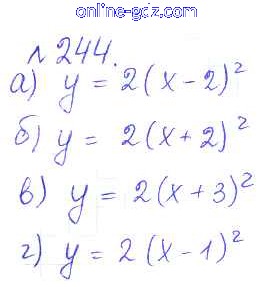 online-gdz.com
л 244.
а) y = 2(x - 2)²
б) y = 2(x + 2)²
в) y = 2(x + 3)²
г) y = 2(x - 1)²